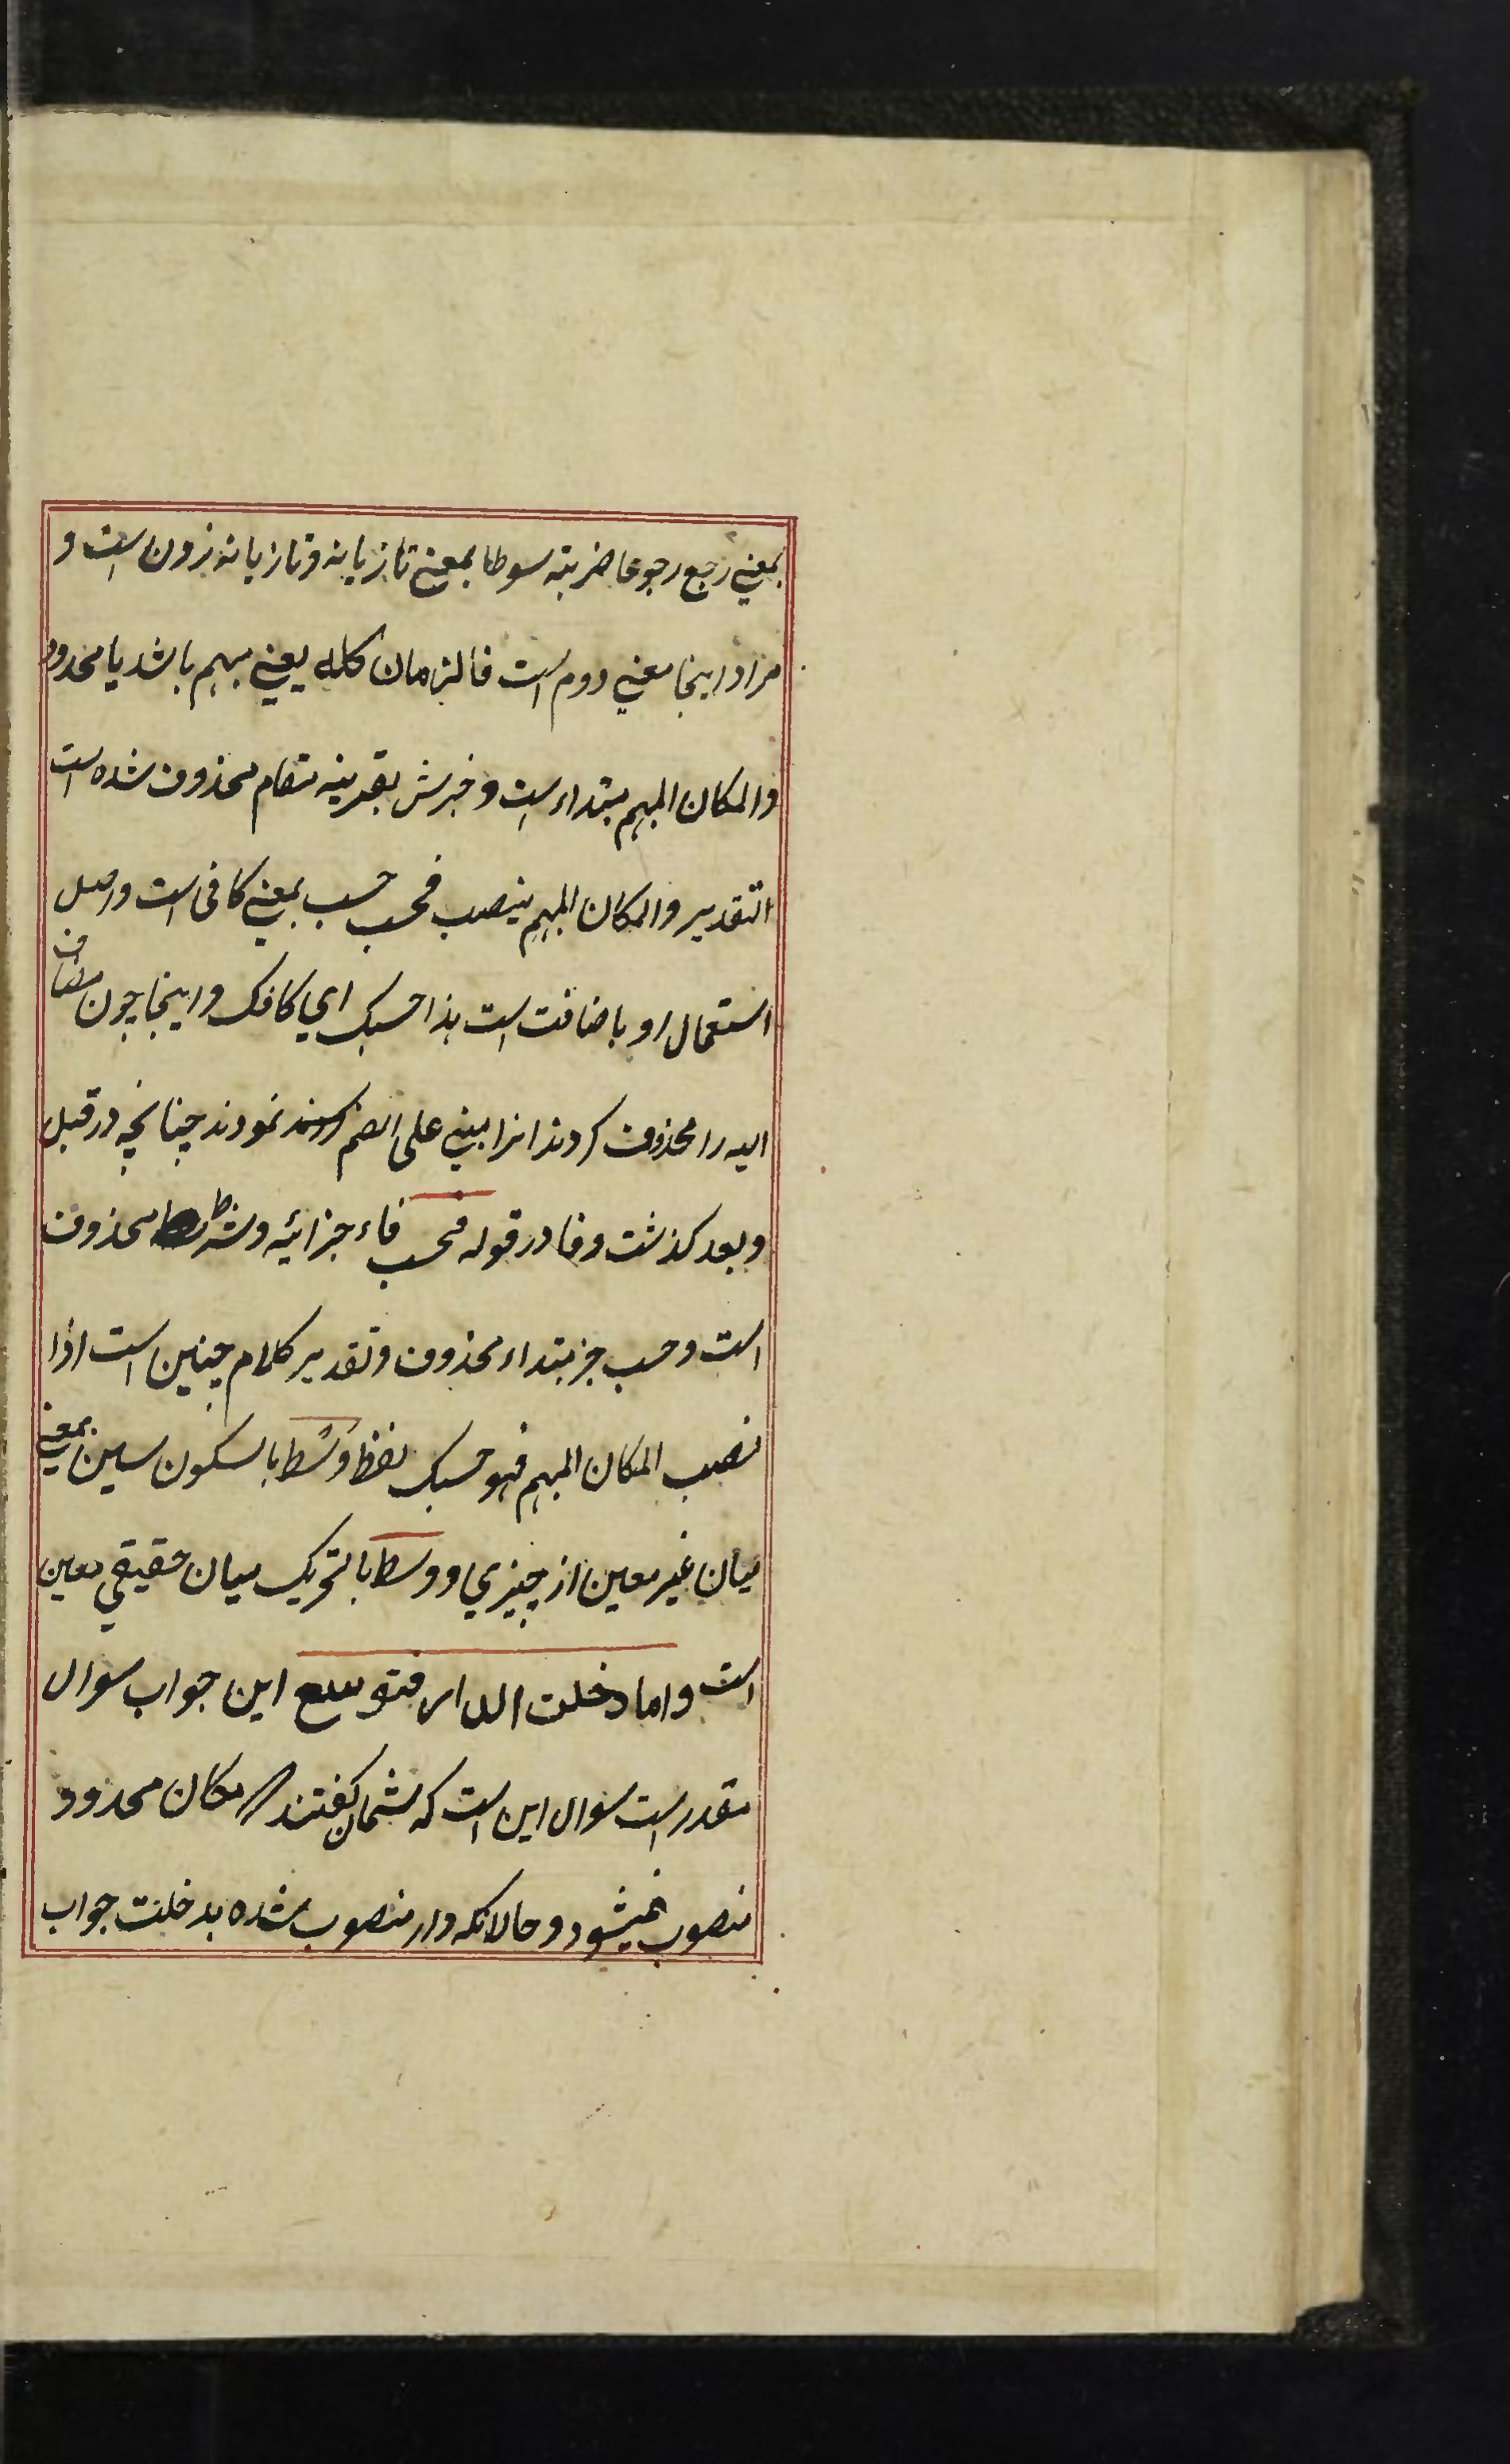 بمعنی رجع رجوعا ضربته سوطا بمعنی تازیانه و تازیانه زدن است و
مراد اینجا معنی دوم است فالزمان کله یعنی مبهم باشد یا محدود
والمکان المبهم مبتداء است و خبرش بقرینه مقام محذوف شده است
التقدیر والمکان المبهم ینصب فحسب حسب بمعنی کافی است و اصل
استعمال او باضافت است هذا حسبک ای کافک و اینجا چون مضاف
الیه را محذوف کردند انرا مبنی علی الضم نمودند چنانچه در قبل
و بعد کذشت و فا در قوله فحسب فاء جزائیه و شرط محذوف
است و حسب خبر مبتداء محذوف و تقدیر کلام چنین است اذا
نصب المکان المبهم فهو حسبک لفظ وسْط بالسکون سین بمعنی
میان غیر معین از چیزی و وسط بالتحریک میان حقیقی معین
است و اما دخلت الدار فتوسع این جواب سوال
مقدر است سوال این است که شمان کفتند مکان محدود
منصوب نمیشود و حالانکه دار منصوب شده بدخلت جواب